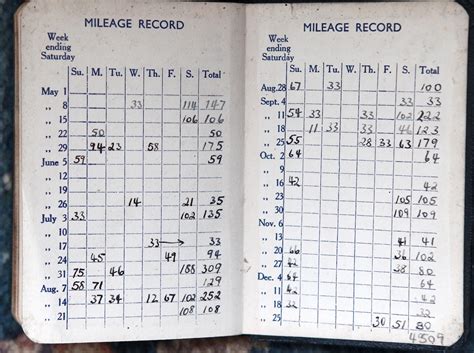 MILEAGE RECORD
Week ending Saturday
Su. M. Tu. W. Th. F. S. Total
May 1
,, 8 33 114 147
,, 15 106 106
,, 22 50 50
,, 29 94 23 58 175
June 5 59 59
,, 12
,, 19
,, 26 14 21 35
July 3 33 102 135
,, 10
,, 17 33 → 33
,, 24 45 49 94
,, 31 75 46 188 309
Aug. 7 58 71 129
,, 14 37 34 12 67 102 252
,, 21 108 108
MILEAGE RECORD
Week ending Saturday
Su. M. Tu. W. Th. F. S. Total
Aug. 28 67 33 100
Sept. 4 33 33
,, 11 54 33 33 102 222
,, 18 11 33 33 46 123
,, 25 55 28 33 63 179
Oct. 2 64 64
,, 9
,, 16 42 42
,, 23 105 105
,, 30 109 109
Nov. 6
,, 13 41 41
,, 20 36 102
,, 27 42 38 80
Dec. 4
,, 11
,, 18
,, 25
30 51
4509